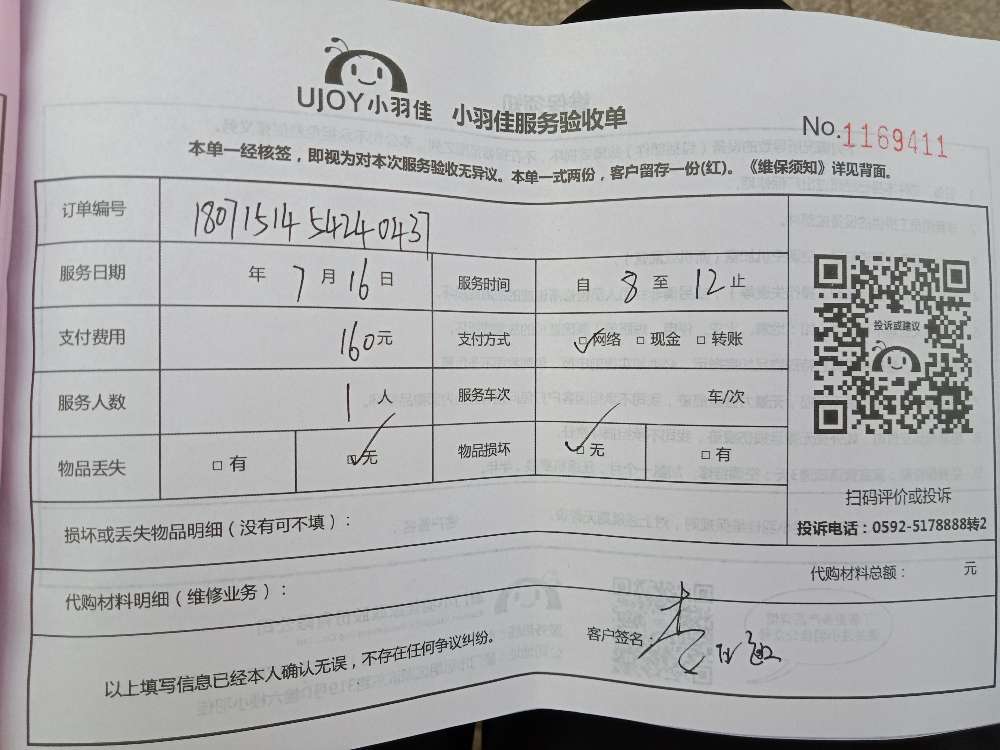 UJOY小羽佳 小羽佳服务验收单
No.1169411
本单一经核签，即视为对本次服务验收无异议。本单一式两份，客户留存一份(红)。《维保须知》详见背面。
订单编号 18071514542440437
服务日期 年 7 月 16 日 服务时间 自 8 至 12 止
支付费用 160元 支付方式 ☑网络 □现金 □转账
服务人数 1 人 服务车次 车/次
物品丢失 □有 ☑无 物品损坏 ☑无 □有
投诉或建议
扫码评价或投诉
投诉电话：0592-5178888转2
损坏或丢失物品明细（没有可不填）：
代购材料明细（维修业务）： 代购材料总额： 元
以上填写信息已经本人确认无误，不存在任何争议纠纷。 客户签名：